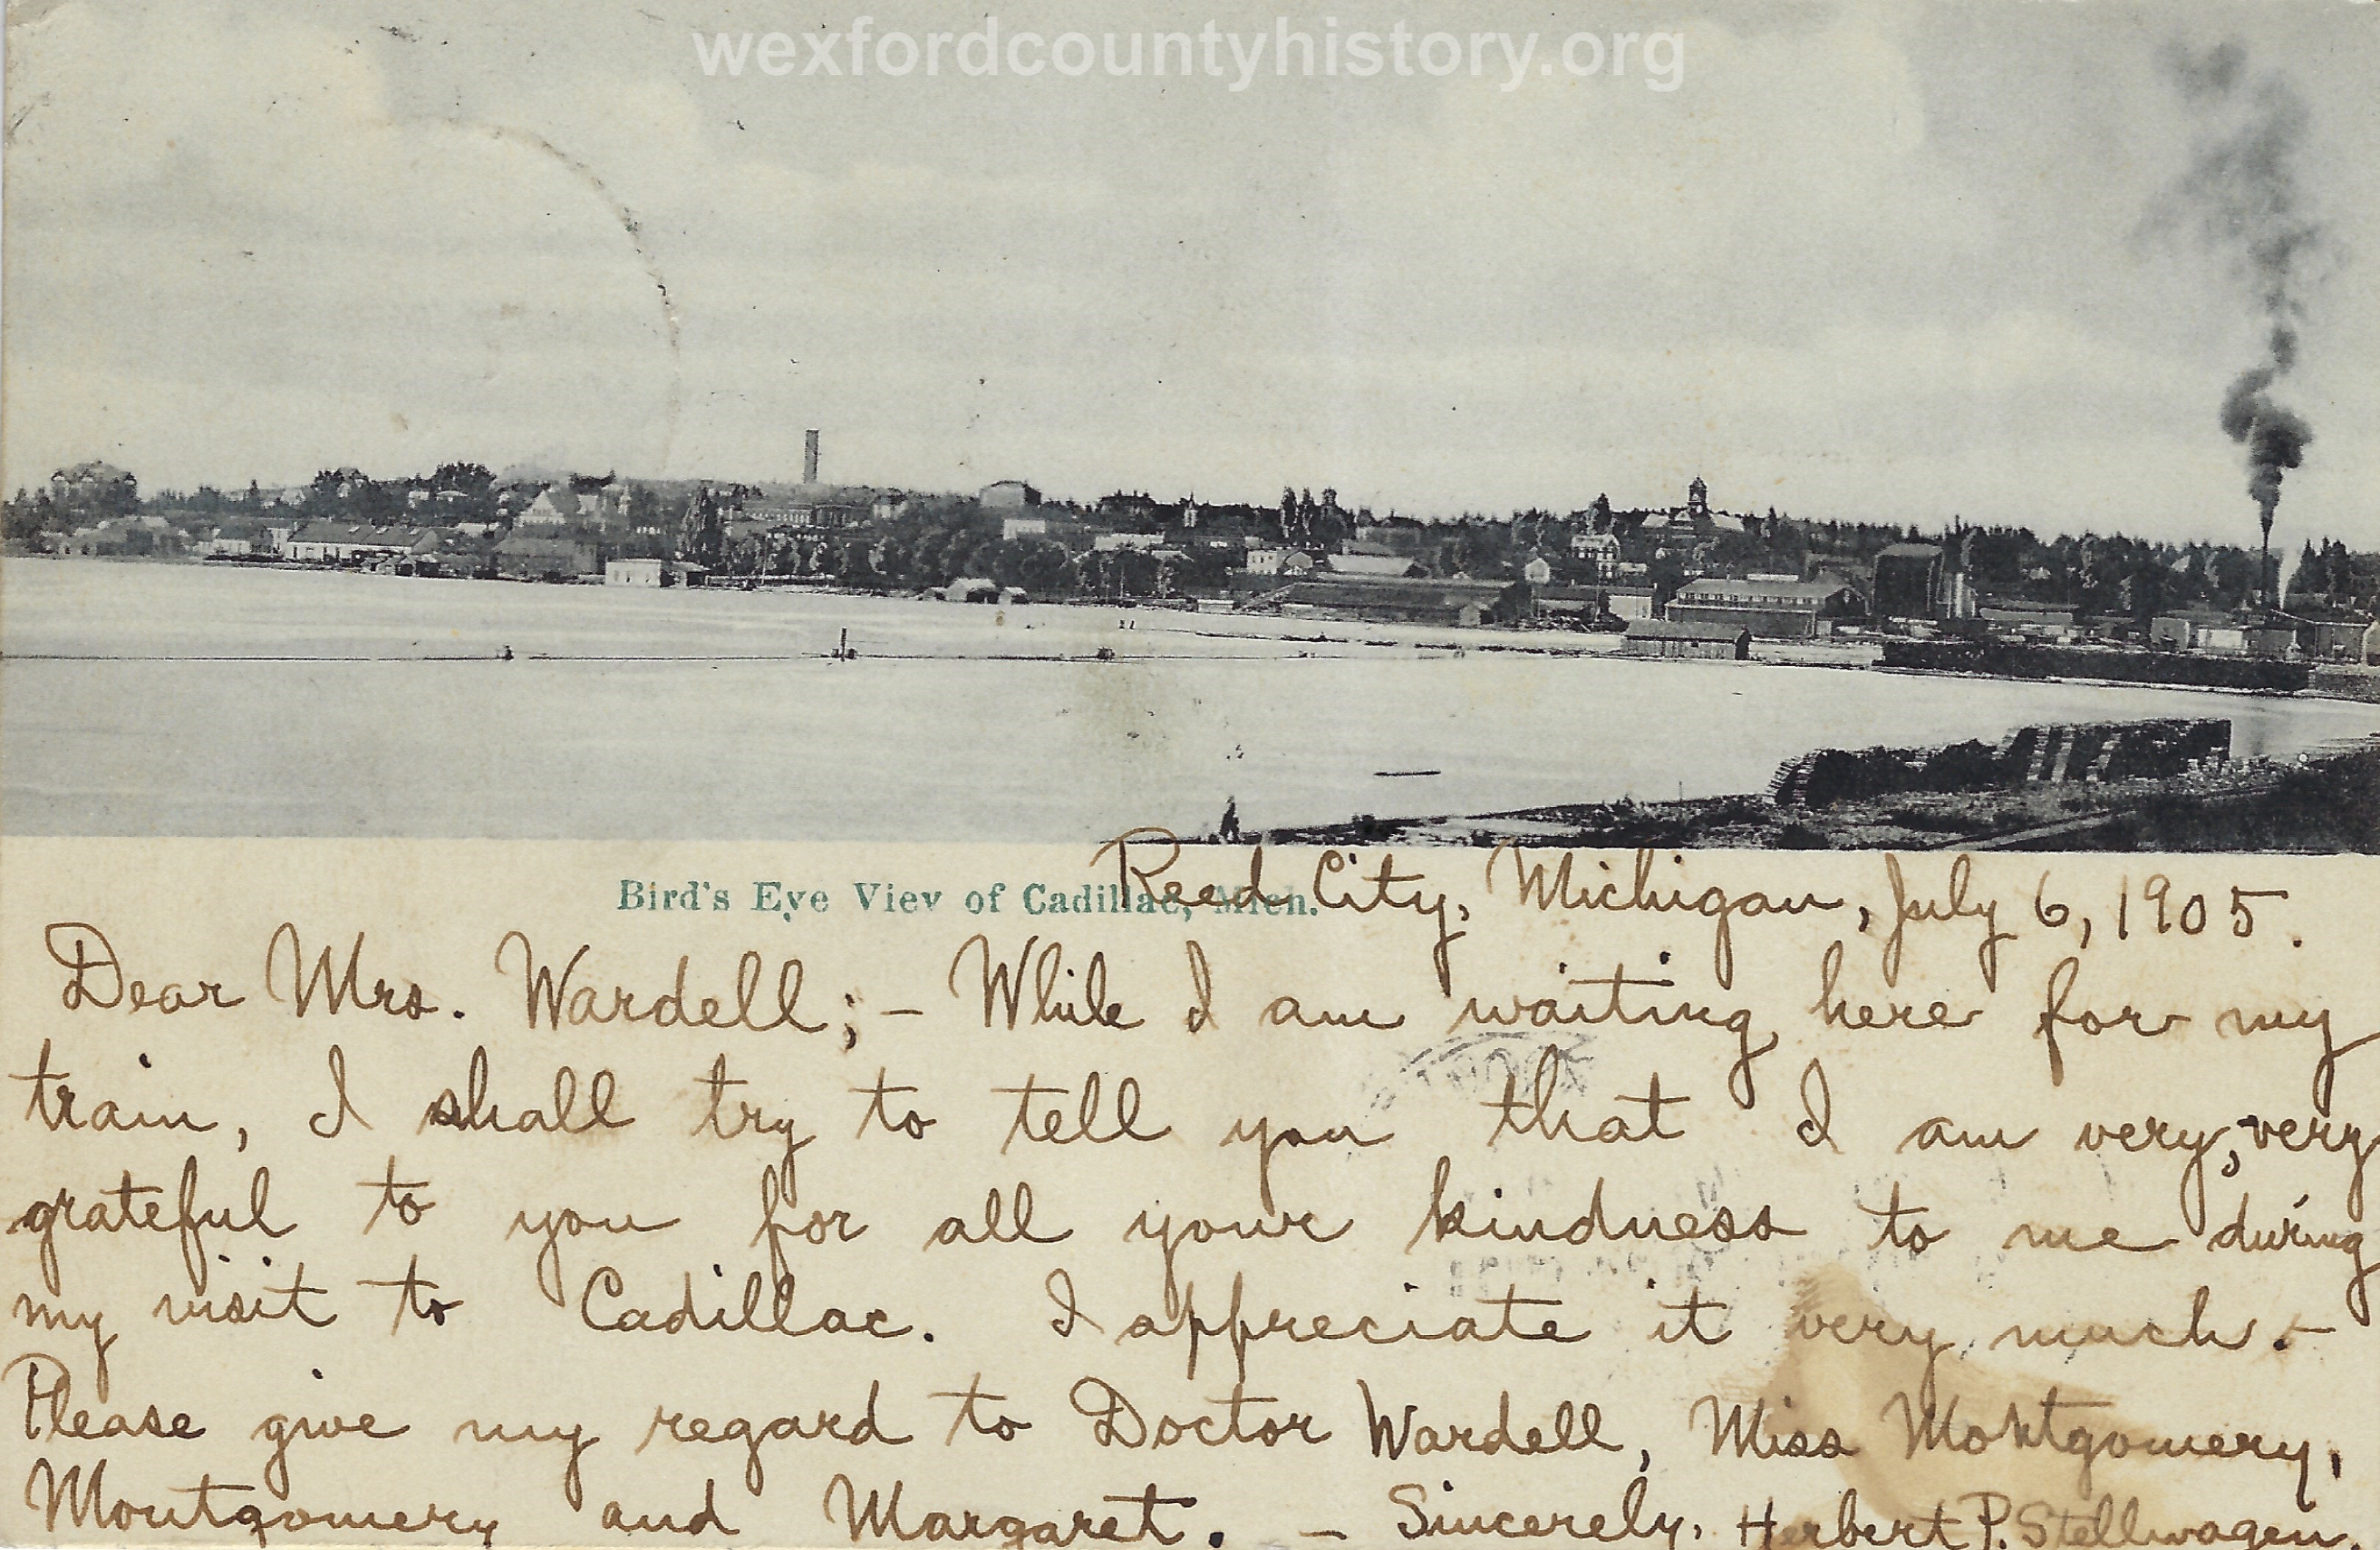 wexfordcountyhistory.org
Bird's Eye View of Cadillac, Mich.
Reed City, Michigan, July 6, 1905.
Dear Mrs. Wardell; - While I am waiting here for my
train, I shall try to tell you that I am very, very
grateful to you for all your kindness to me during
my visit to Cadillac. I appreciate it very much. -
Please give my regard to Doctor Wardell, Miss Montgomery,
Montgomery and Margaret. - Sincerely, Herbert P. Stellwagen.